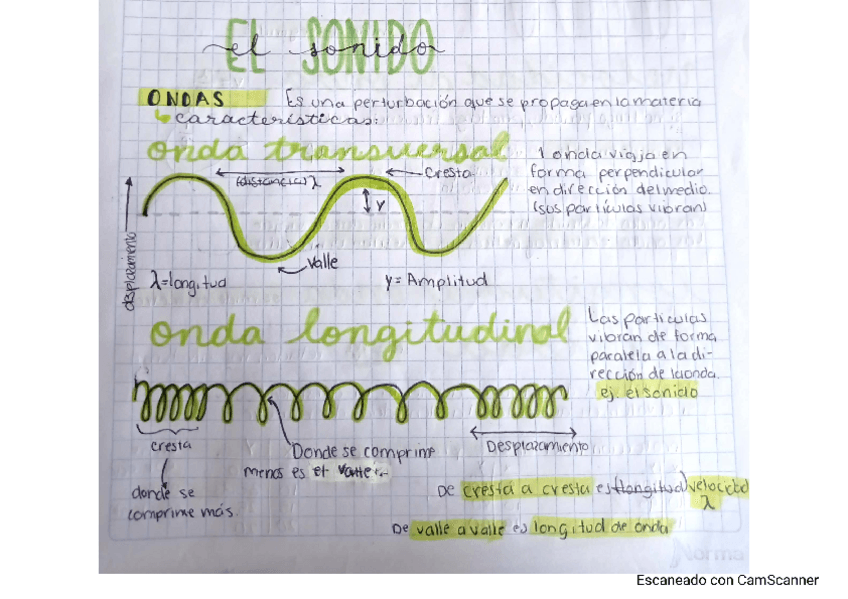 EL SONIDO
el sonido
ONDAS Es una perturbación que se propaga en la materia
características:
onda transversal
1 onda viaja en
forma perpendicular
en dirección del medio.
(sus partículas vibran)
(distancia) λ
Cresta
y
Valle
desplazamiento
λ=longitud
y= Amplitud
onda longitudinal
Las particulas
vibran de forma
paralela a la di-
rección de la onda.
ej. el sonido
cresta
donde se
comprime más
Donde se comprime
menos es el valle.
Desplazamiento
De cresta a cresta es (longitud) velocidad
λ
De valle a valle es longitud de onda
Norma
Escaneado con CamScanner